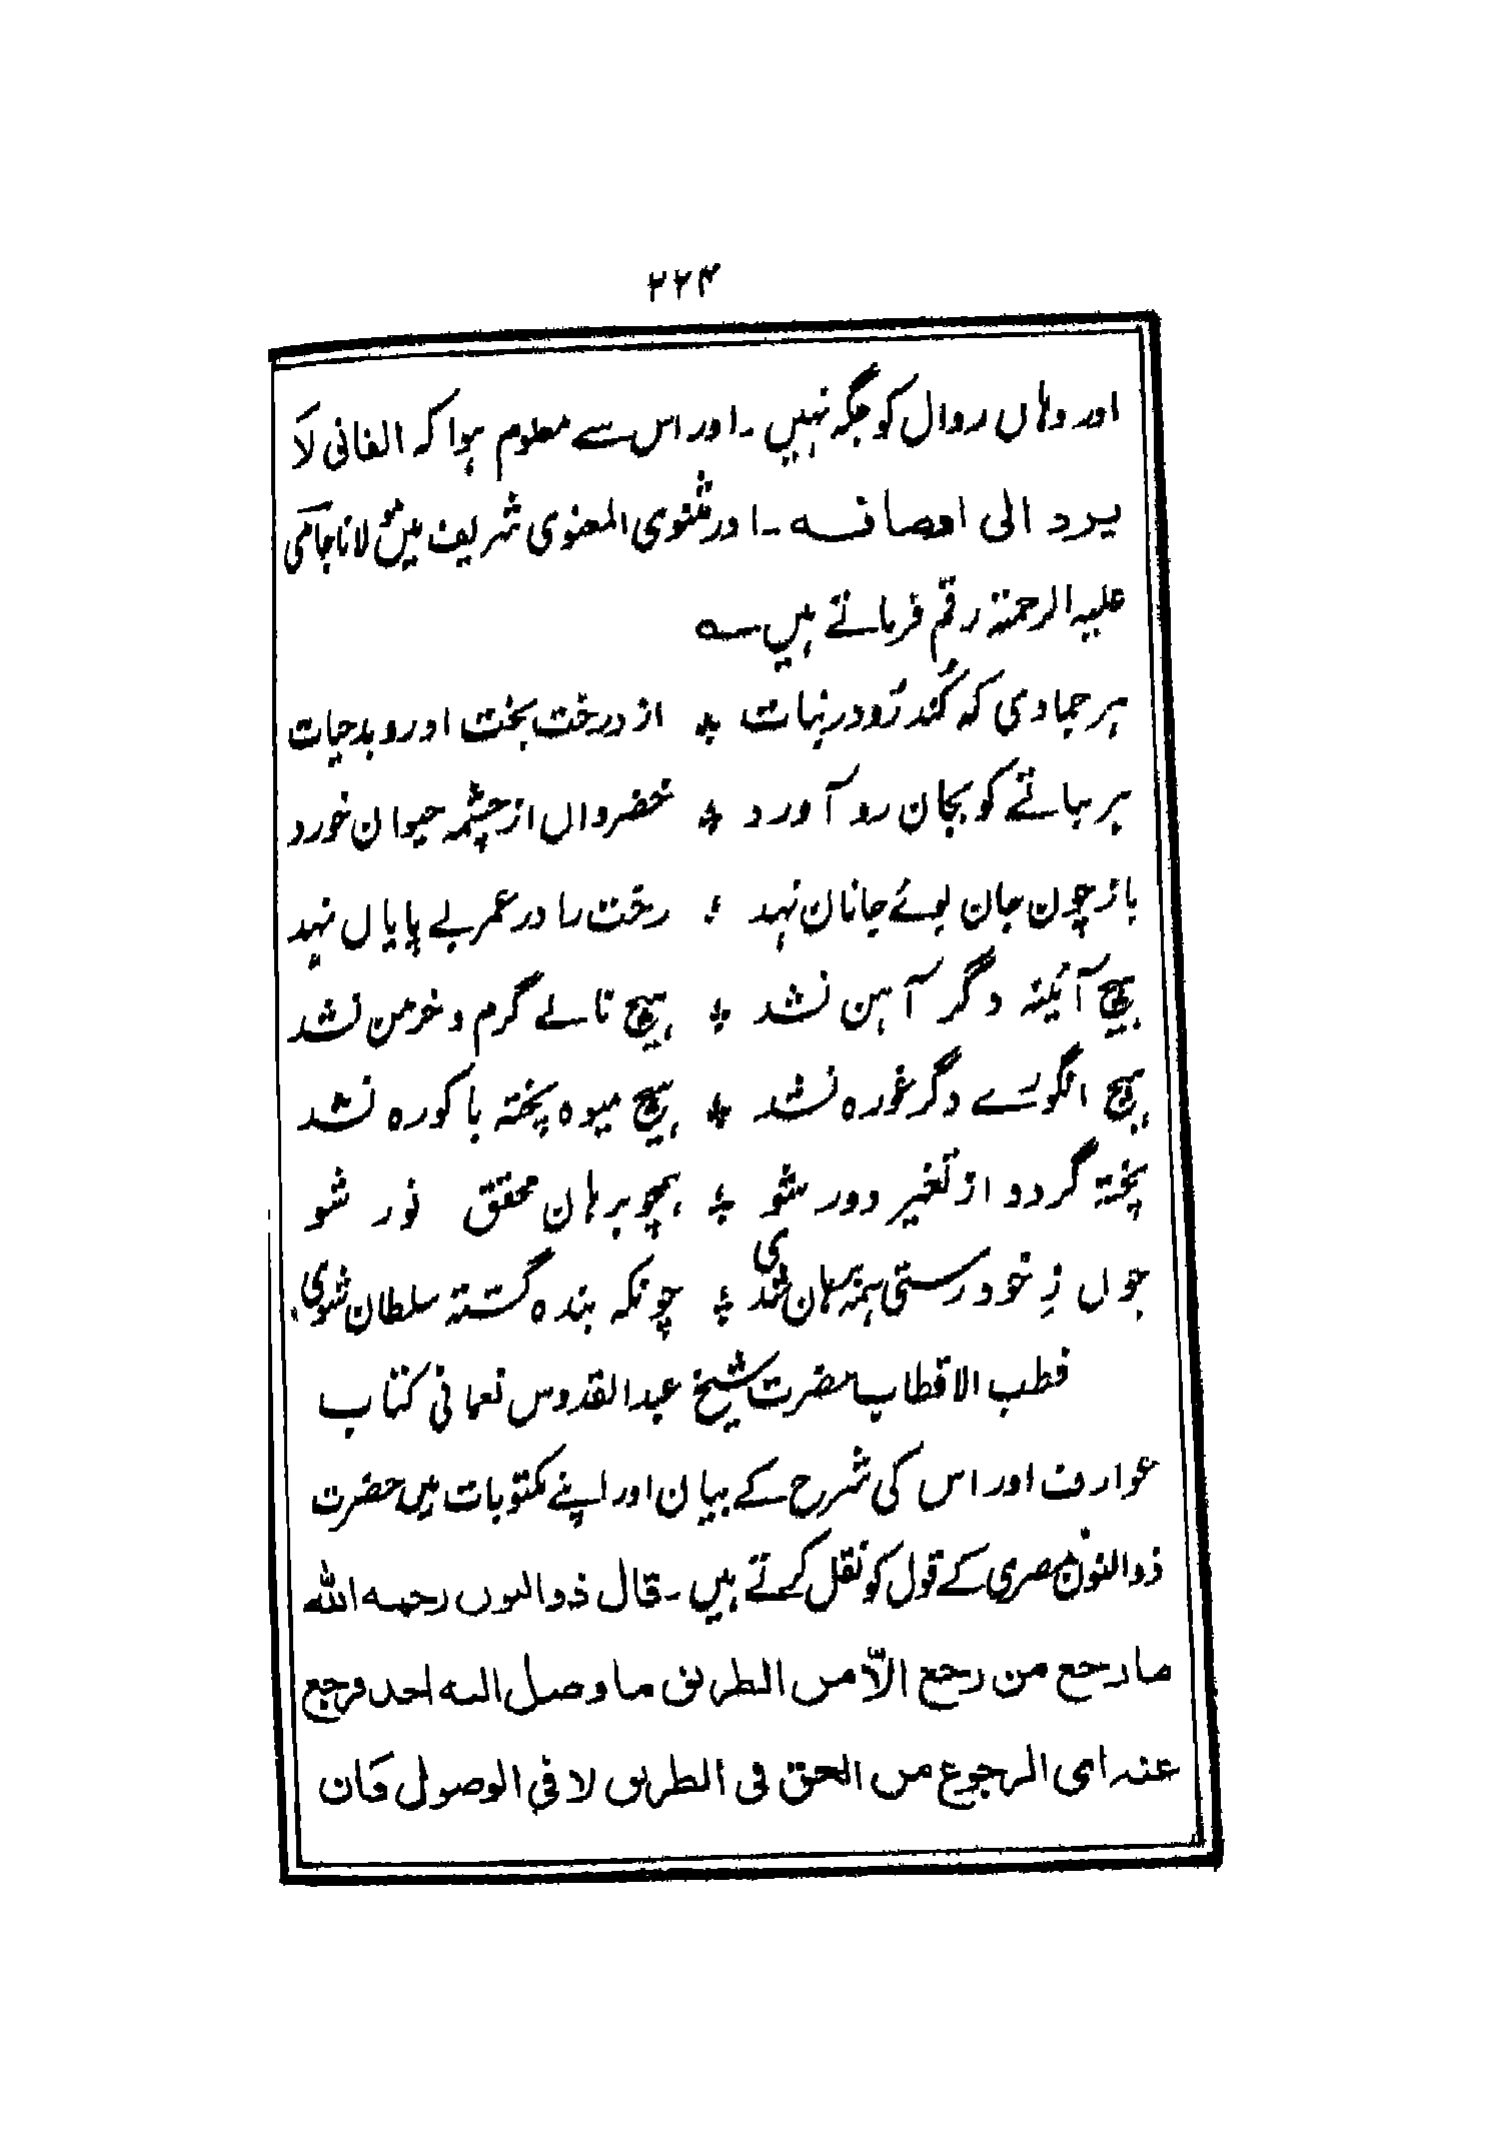 ۲۲۴
اور وہاں زوال کو جگہ نہیں ۔ اور اس سے معلوم ہوا کہ الفانی لَا
یرد الی اوصافہ ۔ اور مثنوی المعنوی شریف میں مولانا جامی
علیہ الرحمۃ رقم فرماتے ہیں ؎
ہر جمادی کہ کُند رُو در نبات ؞ از درخت بخت او روید حیات
ہر نباتے کو بجان رو آورد ؞ خضر وال از چشمہ حیوان خورد
باز چون جان بوئے جانان نہد ؞ رخت را در عمر بے پایاں نہد
ہیچ آئینہ دگر آہن نشد ؞ ہیچ نانے گرم و خرمن نشد
ہیچ انگورے دگر غورہ نشد ؞ ہیچ میوہ پختہ با کورہ نشد
پختہ گردد از تغیر دور شو ؞ ہمچو برہان محقق نور شو
چوں ز خود رستی ہمہ برہان شدی ؞ چونکہ بندہ گشتہ سلطان شوی
قطب الاقطاب حضرت شیخ عبد القدوس نعمانی کتاب
عوارف اور اس کی شرح کے بیان اور اپنے مکتوبات میں حضرت
ذوالنون مصری کے قول کو نقل کرتے ہیں ۔ قال ذوالنون رحمہ اللہ
ما رجع من رجع الاّ من الطریق ما وصل الیہ احد فرجع
عنہ ای الرجوع من الحق فی الطریق لا فی الوصول فان